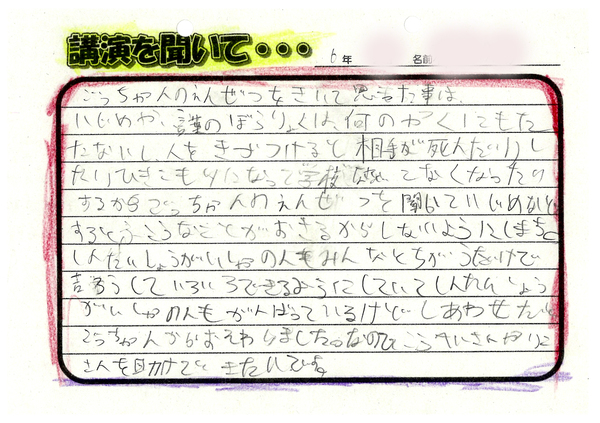 講演を聞いて・・・
6年 名前
ごっちゃんのえんぜつをきいて思った事は、
いじめや、言葉のぼうりょくは、何のやくにもた
たないし、人をきづつけると相手が死んだりし
たりひきこもりになって学校 てなくなったり
するからごっちゃんのえんぜつを聞いていじめなど
するとこうなことがおきるからしないようにしようと
しんたいしょうがいしゃの人もみんなとちがうだけで
いろいろできるようにしていてしんたいしょう
がいしゃの人もがんばっているけどしあわせだと
ごっちゃんからおそわりましたなので
さんを目 きたいです。